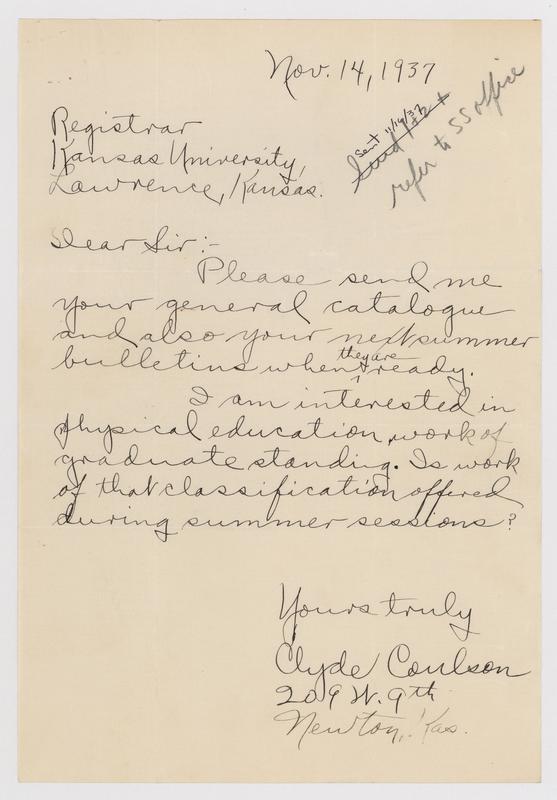 Nov. 14, 1937
sent 11/19/37
Send 1 + 2 +
refer to SS office
Registrar
Kansas University,
Lawrence, Kansas.
Dear Sir:-
Please send me
your general catalogue
and also your next summer
bulletins when they are ready.
I am interested in
physical education, work of
graduate standing. Is work
of that classification offered
during summer sessions?
Yours truly
Clyde Coulson
209 W. 9th
Newton, Kas.